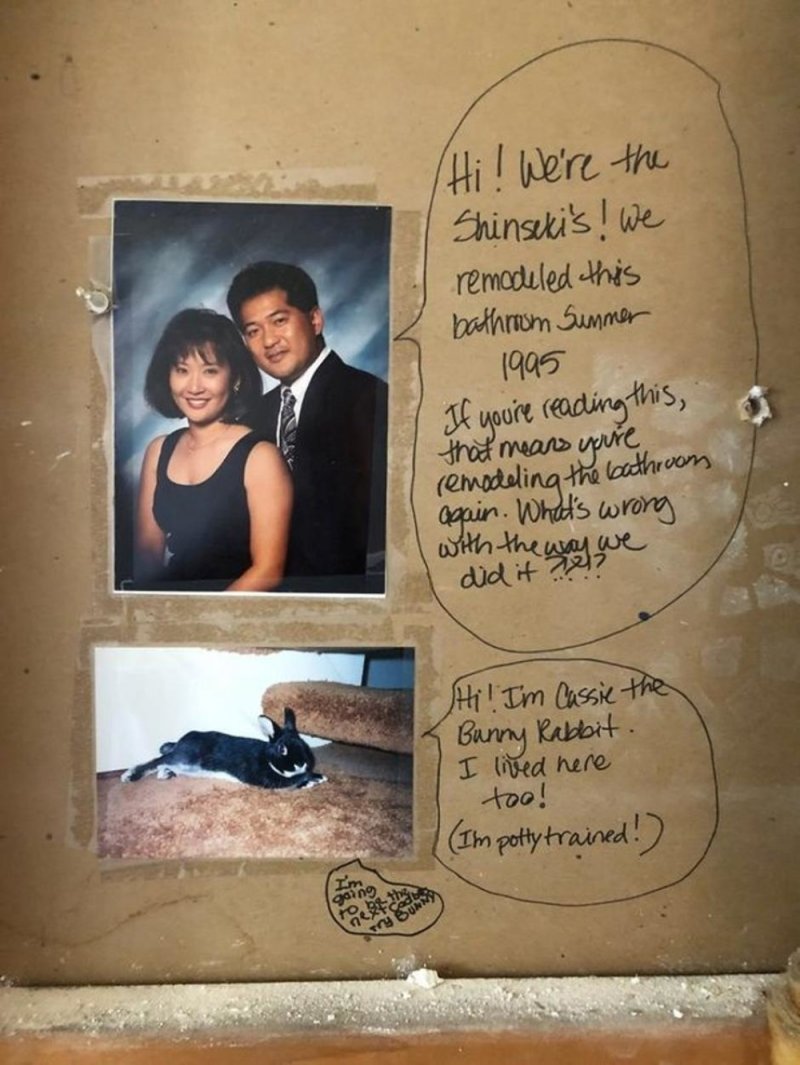 Hi! We're the
Shinseki's! We
remodeled this
bathroom Summer
1995
If you're reading this,
that means you're
remodeling the bathroom
again. What's wrong
with the way we
did it ?!?!?
Hi! I'm Cassie the
Bunny Rabbit.
I lived here
too!
(I'm potty trained!)
I'm
going
to be the
next Cadbu
ry Bunny